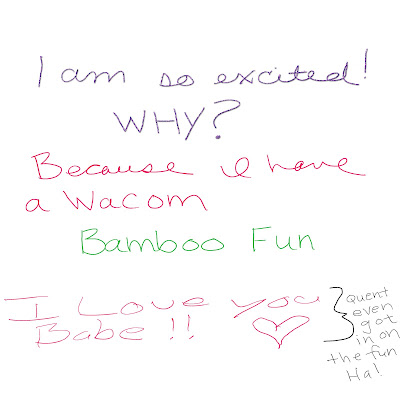 I am so excited!
WHY?
Because I have
a Wacom
Bamboo Fun
I Love you
Babe !!
Quent
even
got
in on
the fun
Ha!